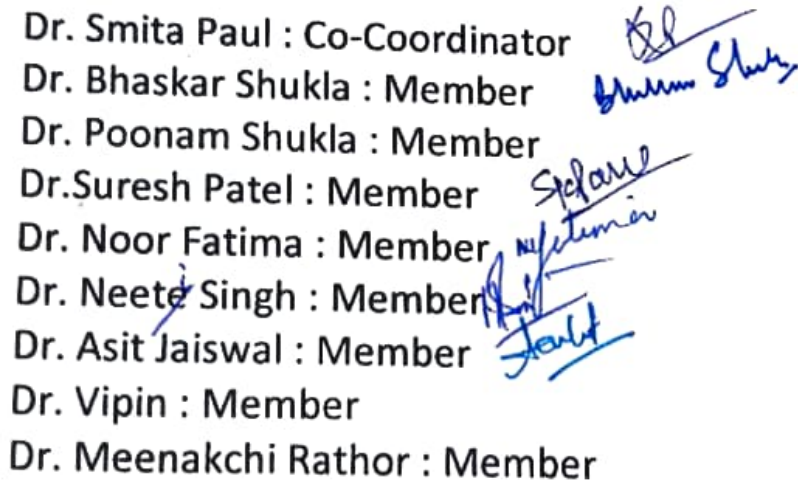 Dr. Smita Paul : Co-Coordinator
Dr. Bhaskar Shukla : Member
Dr. Poonam Shukla : Member
Dr.Suresh Patel : Member
Dr. Noor Fatima : Member
Dr. Neete Singh : Member
Dr. Asit Jaiswal : Member
Dr. Vipin : Member
Dr. Meenakchi Rathor : Member